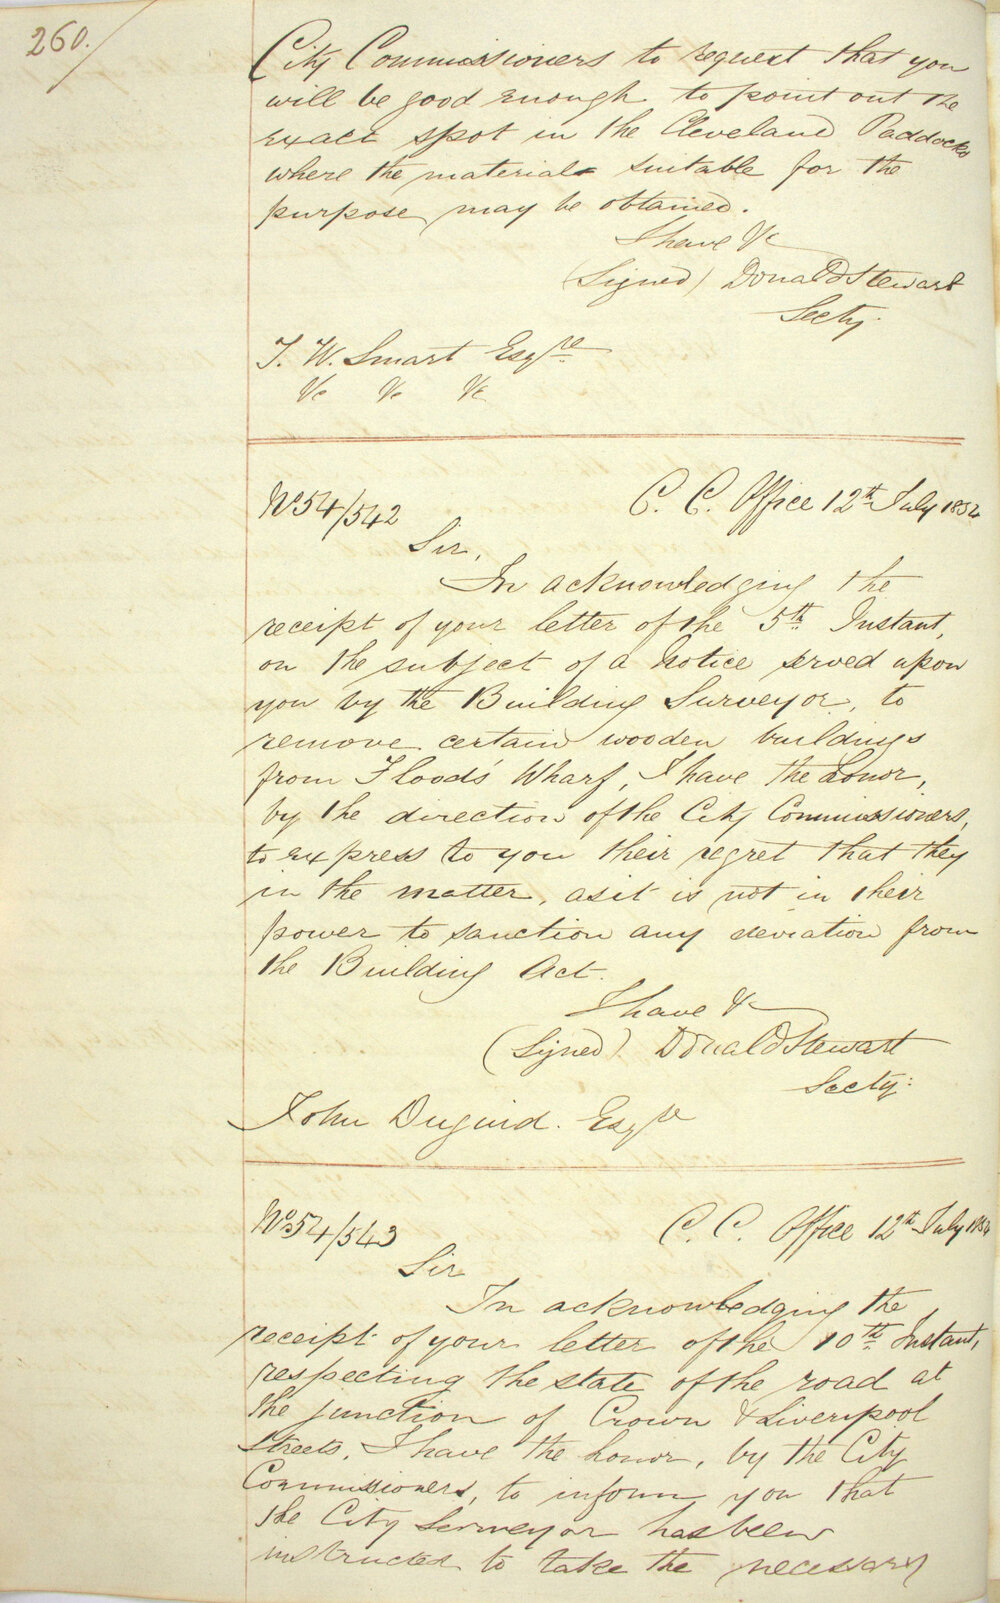 260.
City Commissioners to request that you
will be good enough to point out the
exact spot in the Cleveland Paddocks
where the materials suitable for the
purpose, may be obtained.
I have &c
(Signed) Donald Stewart
Secty.
T. W. Smart Esqre
&c &c &c
No 54/542
C. C. Office 12th July 1854
Sir,
In acknowledging the
receipt of your letter of the 5th Instant,
on the subject of a Notice served upon
you by the Building Surveyor, to
remove certain wooden buildings
from Flood's Wharf, I have the honor,
by the direction of the City Commissioners,
to express to you their regret that they
in the matter, as it is not in their
power to sanction any deviation from
the Building Act.
I have &c
(Signed) Donald Stewart
Secty.
John Duguid. Esqre
No 54/543
C. C. Office 12th July 1854
Sir
In acknowledging the
receipt of your letter of the 10th Instant,
respecting the state of the road at
the junction of Crown & Liverpool
Streets, I have the honor, by the City
Commissioners, to inform you that
the City Surveyor has been
instructed to take the necessary